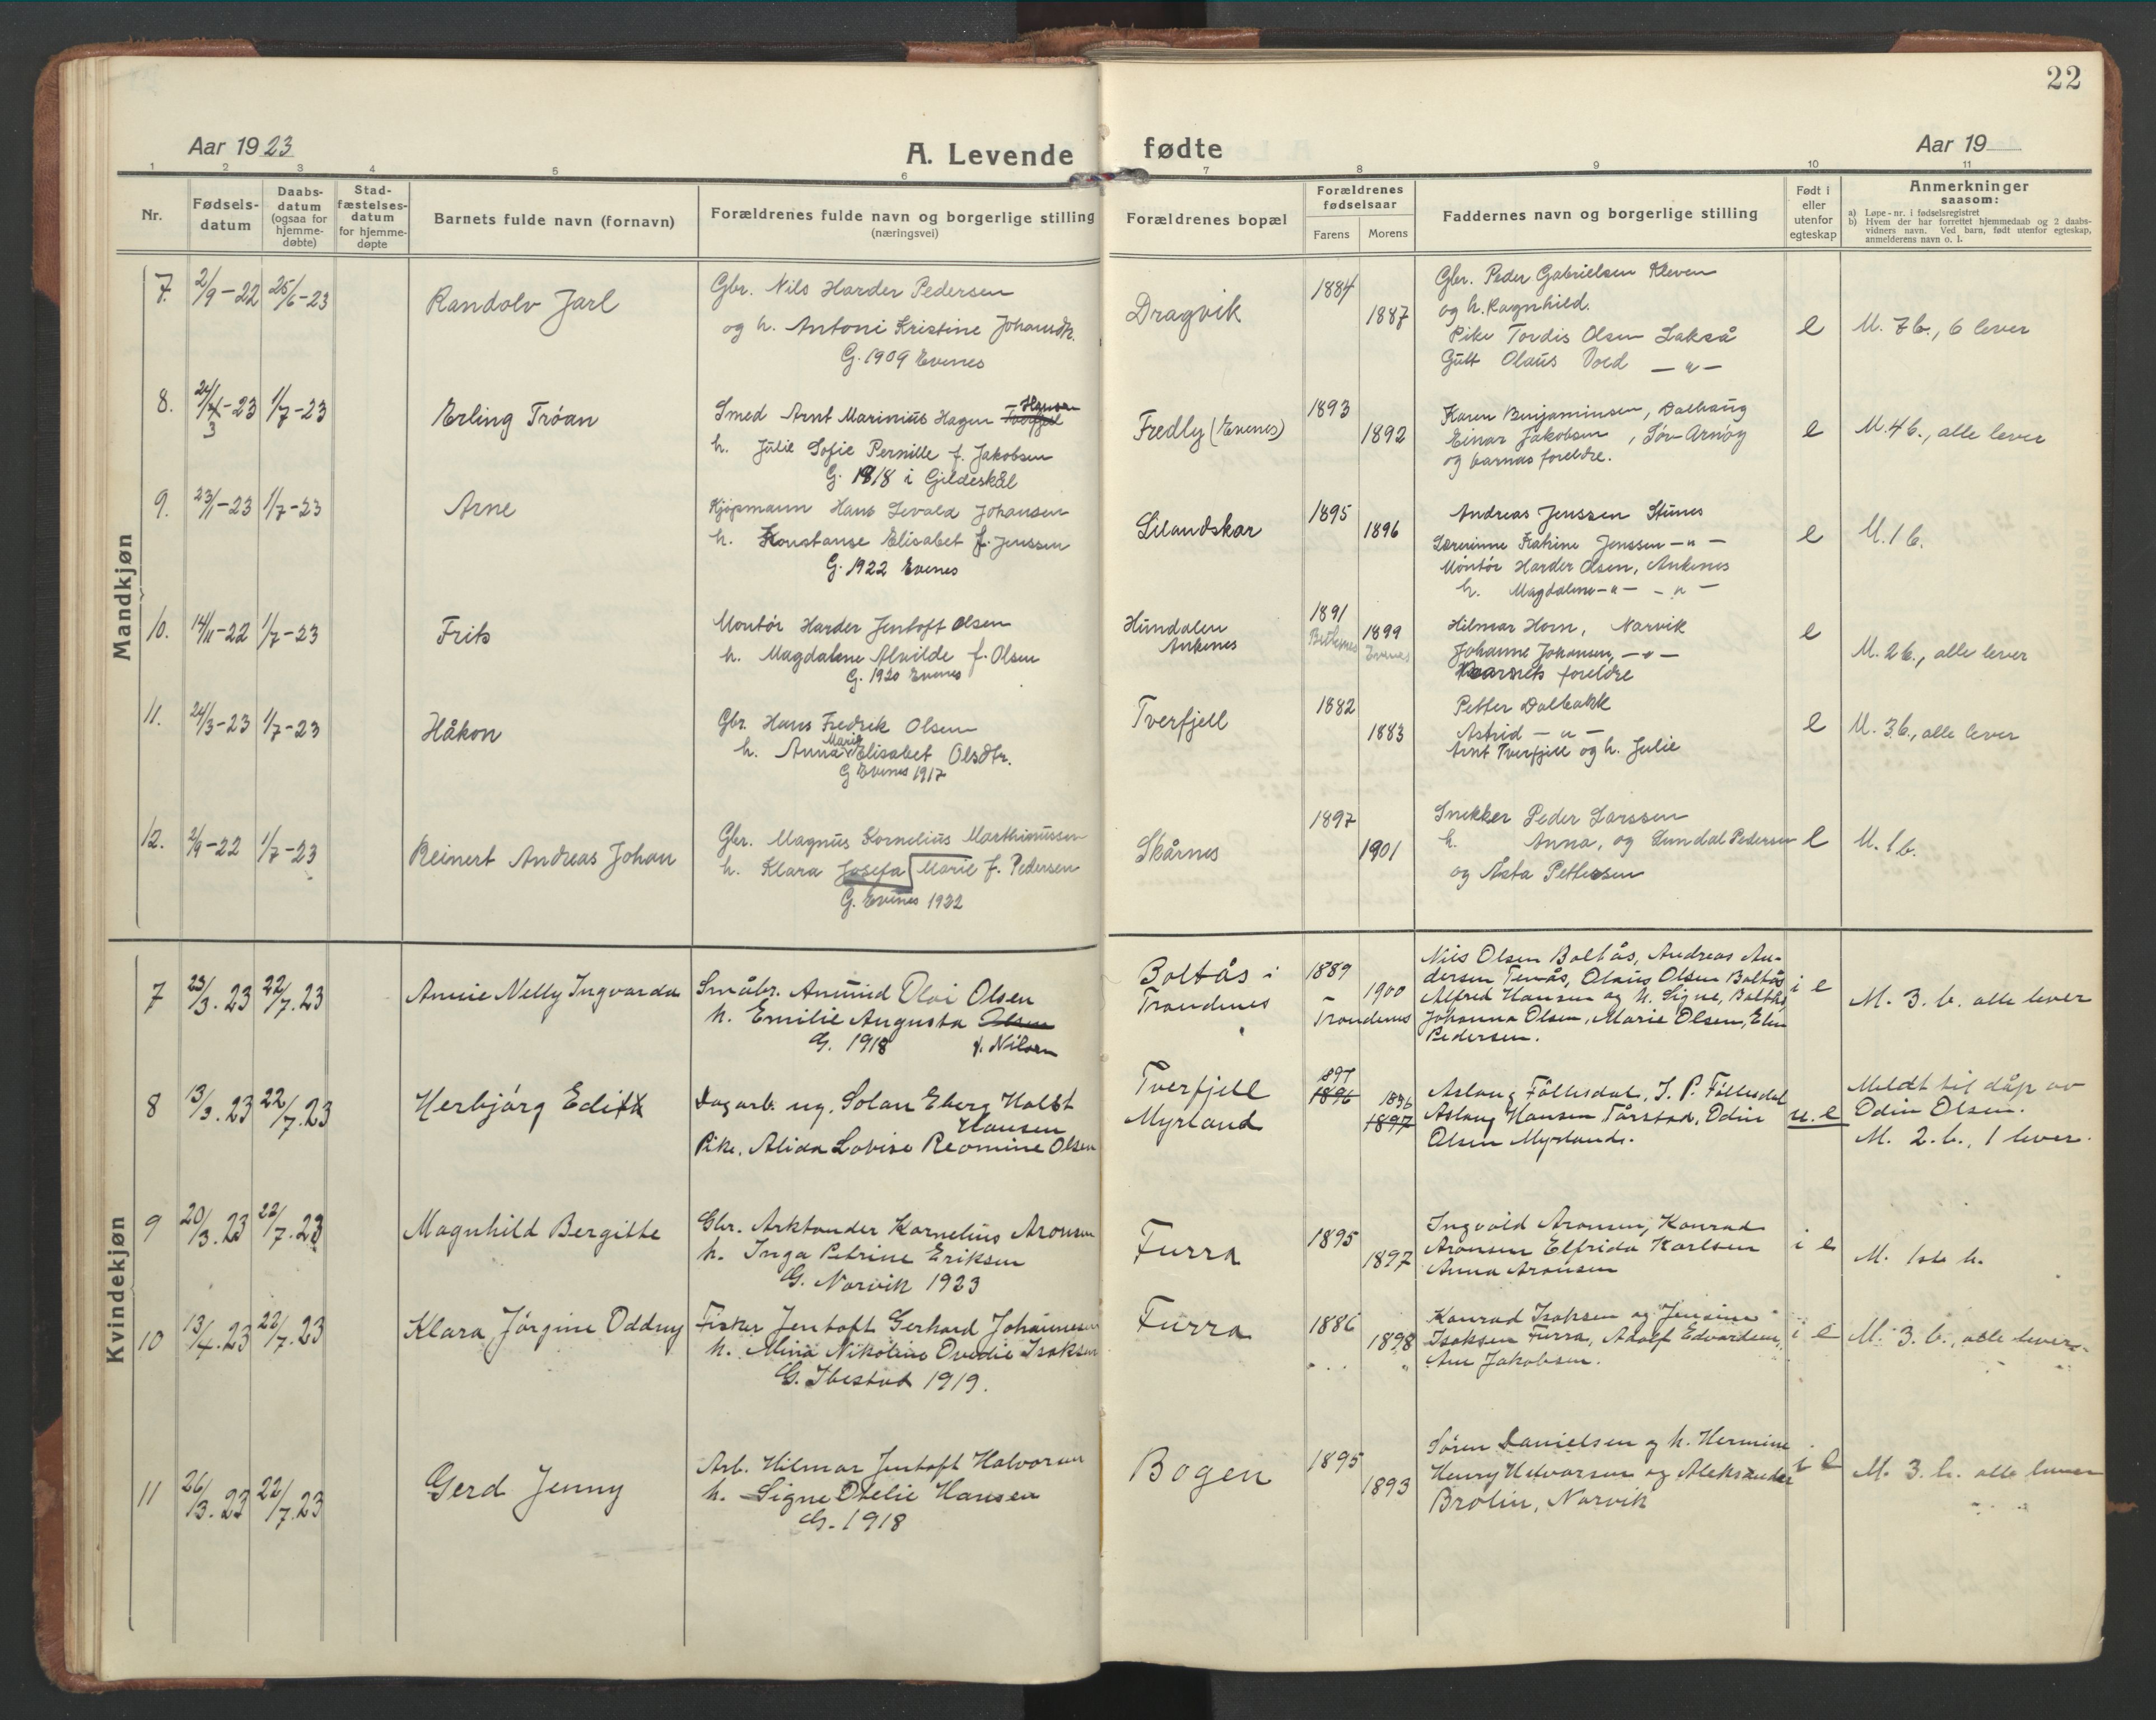 22
Aar 1923
A. Levende fødte
Aar 19
1 2 3 4 5 6 7 8 9 10 11
Nr.
Fødsels-
datum
Daabs-
datum
(ogsaa for
hjemme-
døbte)
Stad-
fæstelses-
datum
for hjemme-
døpte
Barnets fulde navn (fornavn)
Forældrenes fulde navn og borgerlige stilling
(næringsvei)
Forældrenes bopæl
Forældrenes
fødselsaar
Farens
Morens
Faddernes navn og borgerlige stilling
Født i
eller
utenfor
egteskap
Anmerkninger
saasom:
a) Løpe-nr. i fødselsregistret
b) Hvem der har forrettet hjemmedaab og 2 daabs-
vidners navn. Ved barn, født utenfor egteskap,
anmelderens navn o. l.
Mandkjøn
7. 2/9-22 25/6-23
Randolv Jarl
Gbr. Nils Harder Pedersen
og h. Antoni Kristine Johansdtr.
G. 1909 Evenes
Dragvik
1884
1887
Gbr. Peder Gabrielsen Kleven
og h. Ragnhild.
Pike Tordis Olsen Lakså
Gutt Olaus Voed — " —
e
M. 7 b., 6 lever
8. 24/3-23 1/7-23
Erling Tróan
Smed Arnt Marinius Hagen Hansen
h. Julie Sofie Pernille f. Jakobsen
G. 1918 i Gildeskål
Fredly (Evenes)
1893
1892
Karen Benjaminsen, Dalhaug
Einar Jakobsen, Sør-Arnøy
og barnas foreldre.
e
M. 4 b., alle lever
9. 23/1-23 1/7-23
Arne
Kjøpmann Hans Sevald Johansen
h. Konstanse Elisabet f. Jenssen
G. 1922 Evenes
Lilandskar
1895
1896
Andreas Jenssen Stunes
Lærerinne Katrine Jenssen — " —
Montör Harder Olsen, Ankenes
h. Magdalene — " — — " —
e
M. 1 b.
10. 14/11-22 1/7-23
Frits
Montör Harder Jentoft Olsen
h. Magdalene Alvilde f. Olsen
G. 1920 Evenes
Hundalen
Ankenes
1891
1899
Evenes
Hilmar Horn, Narvik
Johanne Johansen, — " —
Barnets foreldre
e
M. 2 b., alle lever
11. 24/3-23 1/7-23
Håkon
Gbr. Hans Fredrik Olsen
h. Anna Marie Elisabet Olsdtr.
G Evenes 1917
Tverfjell
1882
1883
Petter Dalbakk
Astrid — " —
Arnt Tverfjell og h. Julie
e
M. 3 b., alle lever
12. 2/9-22 1/7-23
Reinert Andreas Johan
Gbr. Magnus Kornelius Marthinussen
h. Klara Josefa Marie f. Pedersen
G. Evenes 1922
Skårnes
1897
1901
Snekker Peder Larssen
h. Anna, og Lundal Pedersen
og Åsta Pettersen
e
M. 1 b.
Kvindekjøn
7 23/3.23 22/7.23
Annie Nelly Ingvarda
Småbr. Anund Olai Olsen
h. Emilie Augusta Olsen
G. 1918 f. Nilsen
Boltås i
Trondenes
1889
1900
Trondenes
Nils Olsen Boltås, Andreas An-
dersen Tenås, Olaus Olsen Boltås
Alfred Hansen og h. Signe, Boltås
Johanna Olsen, Marie Olsen, Elen
Pedersen.
i e
M. 3. b. alle lever
8 13/3.23 22/7.23
Herbjörg Edit
Dagarb. ug. Solan Eberg Holst
Hansen
Pike. Alida Lovise Reomine Olsen
Tverfjell
Myrland
1897
1896
1896
1897
Aslaug Föllesdal, J. P. Föllesdal
Aslaug Hansen Tårstad, Odin
Olsen Myrland.
u. e
Meldt til dåp av
Odin Olsen.
M. 2. b., 1 lever.
9 20/3.23 22/7.23
Magnhild Bergitte
Gbr. Arktander Kornelius Aronsen
h. Inga Petrine Eriksen
G. Narvik 1923
Furra
1895
1897
Ingvald Aronsen, Konrad
Aronsen Elfrida Karlsen
Anna Aronsen
i e
M. 1ste b.
10 13/4.23 22/7.23
Klara, Jörgine Oddny
Fisker Jentoft Gerhard Johannesen
h. Mina Nikoline Ovedie Isaksen
G. Ibestad 1919.
Furra
1886
1898
Konrad Isaksen og Jensine
Isaksen Furra, Adolf Edvardsen,
Ane Jakobsen.
i e
M. 3. b., alle lever.
11 26/3.23 22/7.23
Gerd Jenny
Arb. Hilmar Jentoft Halvorsen
h. Signe Otelie Hansen
G. 1918
Bogen
1895
1893
Sören Danielsen og h. Hermine
Henry Halvorsen og Aleksander
Brolin, Narvik
i e
M. 3. b. alle lever